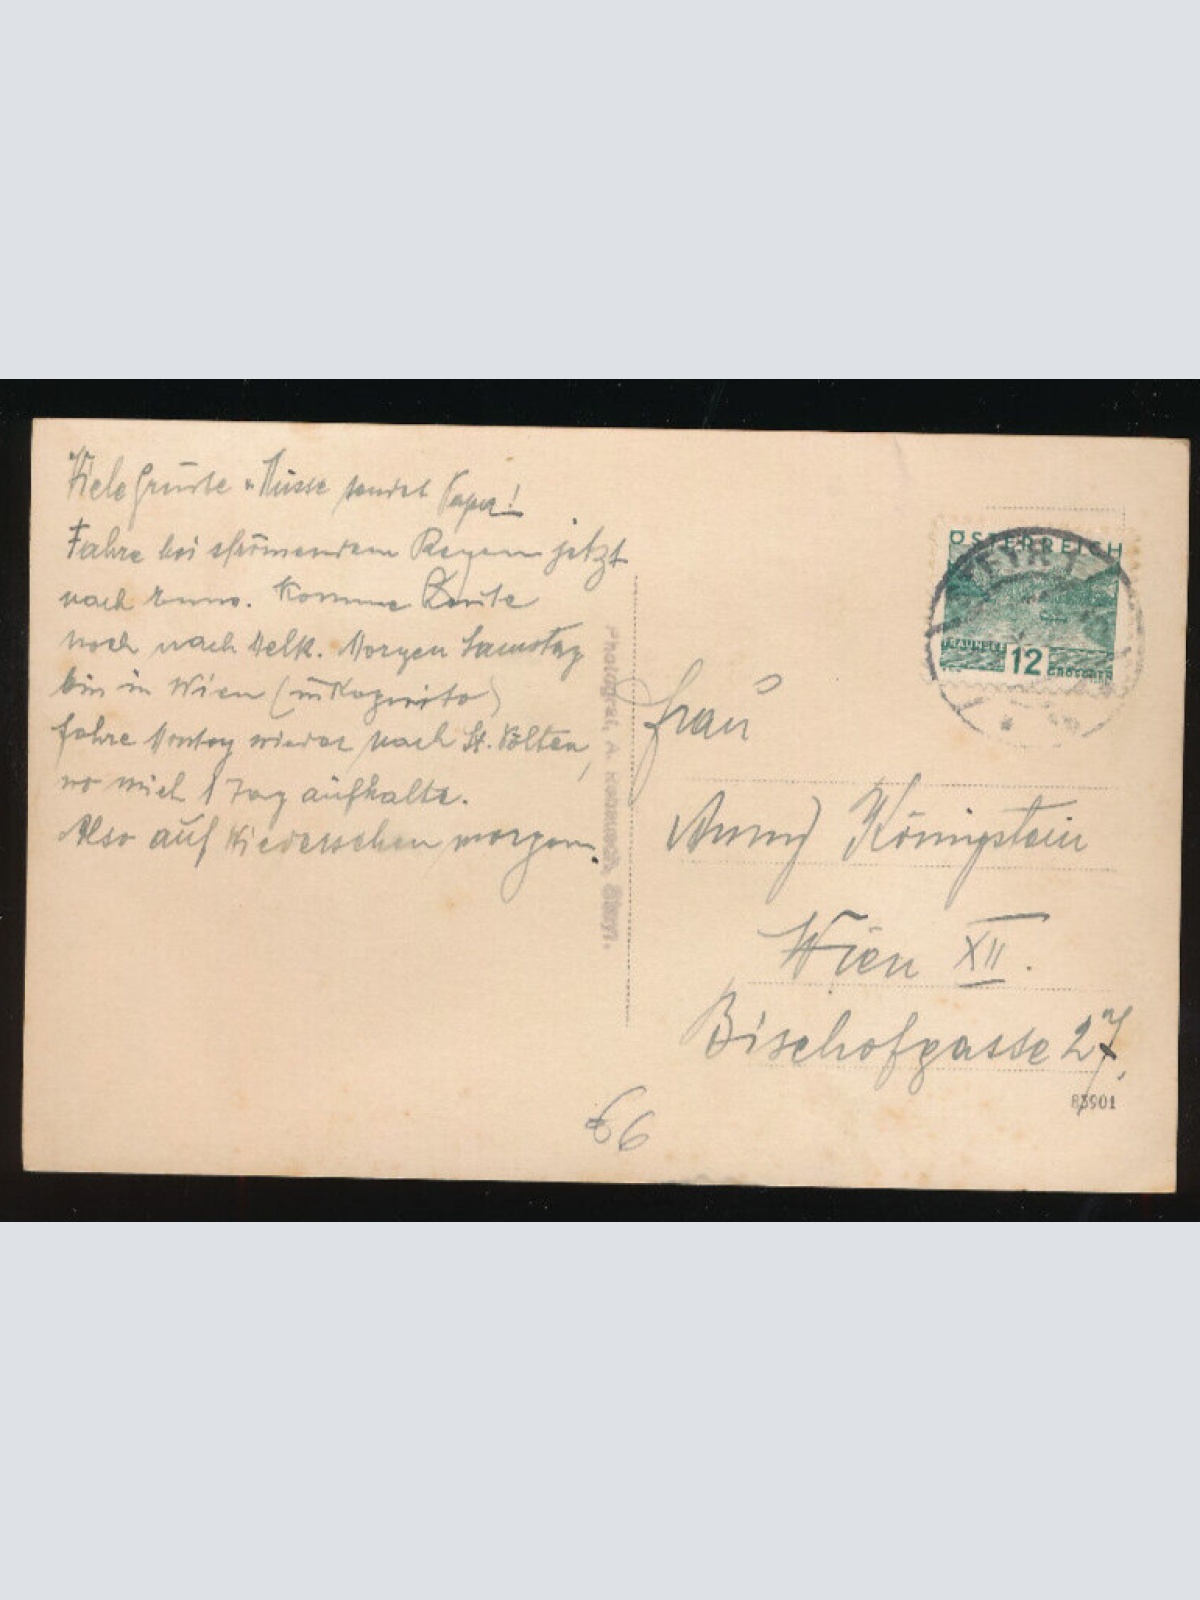 Viele Grüsse u. Küsse sendet Papa!
Fahre bei strömendem Regen jetzt
nach Enns. Komme Heute
noch nach Melk. Morgen Samstag
bin in Wien (inkognito)
fahre Montag wieder nach St. Pölten,
wo mich 1 Tag aufhalte.
Also auf Wiedersehen morgen.
Photograf. A. Steyr.
ÖSTERREICH
STEYR 1
TRAUNSEE
12
GROSCHEN
Frau
Anny Königstein
Wien XII.
Bischofgasse 27.
83901
66